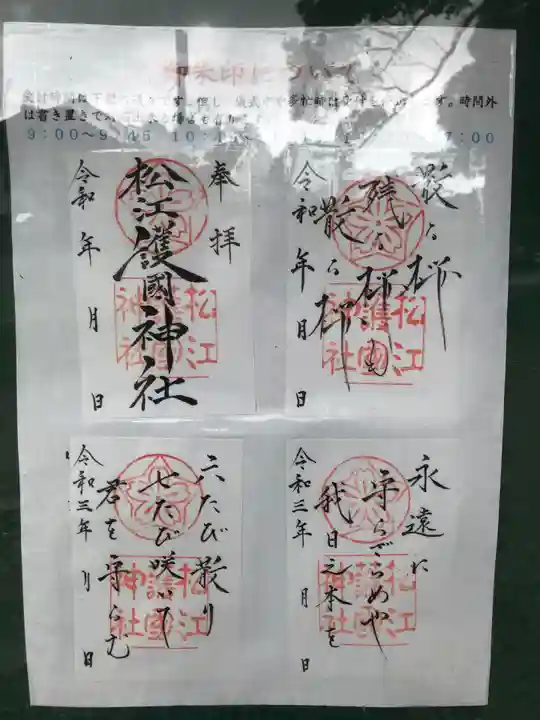 御朱印について
9:00～9:45
奉拝
松江護國神社
令和 年 月 日
松江
護國
神社
散る桜
残る桜も
散る桜
令和 年 月 日
松江
護國
神社
六たび散り
七たび咲いて
君を守らむ
令和三年 月 日
松江
護國
神社
永遠に
守らざらめや
我日之本を
令和三年 月 日
松江
護國
神社